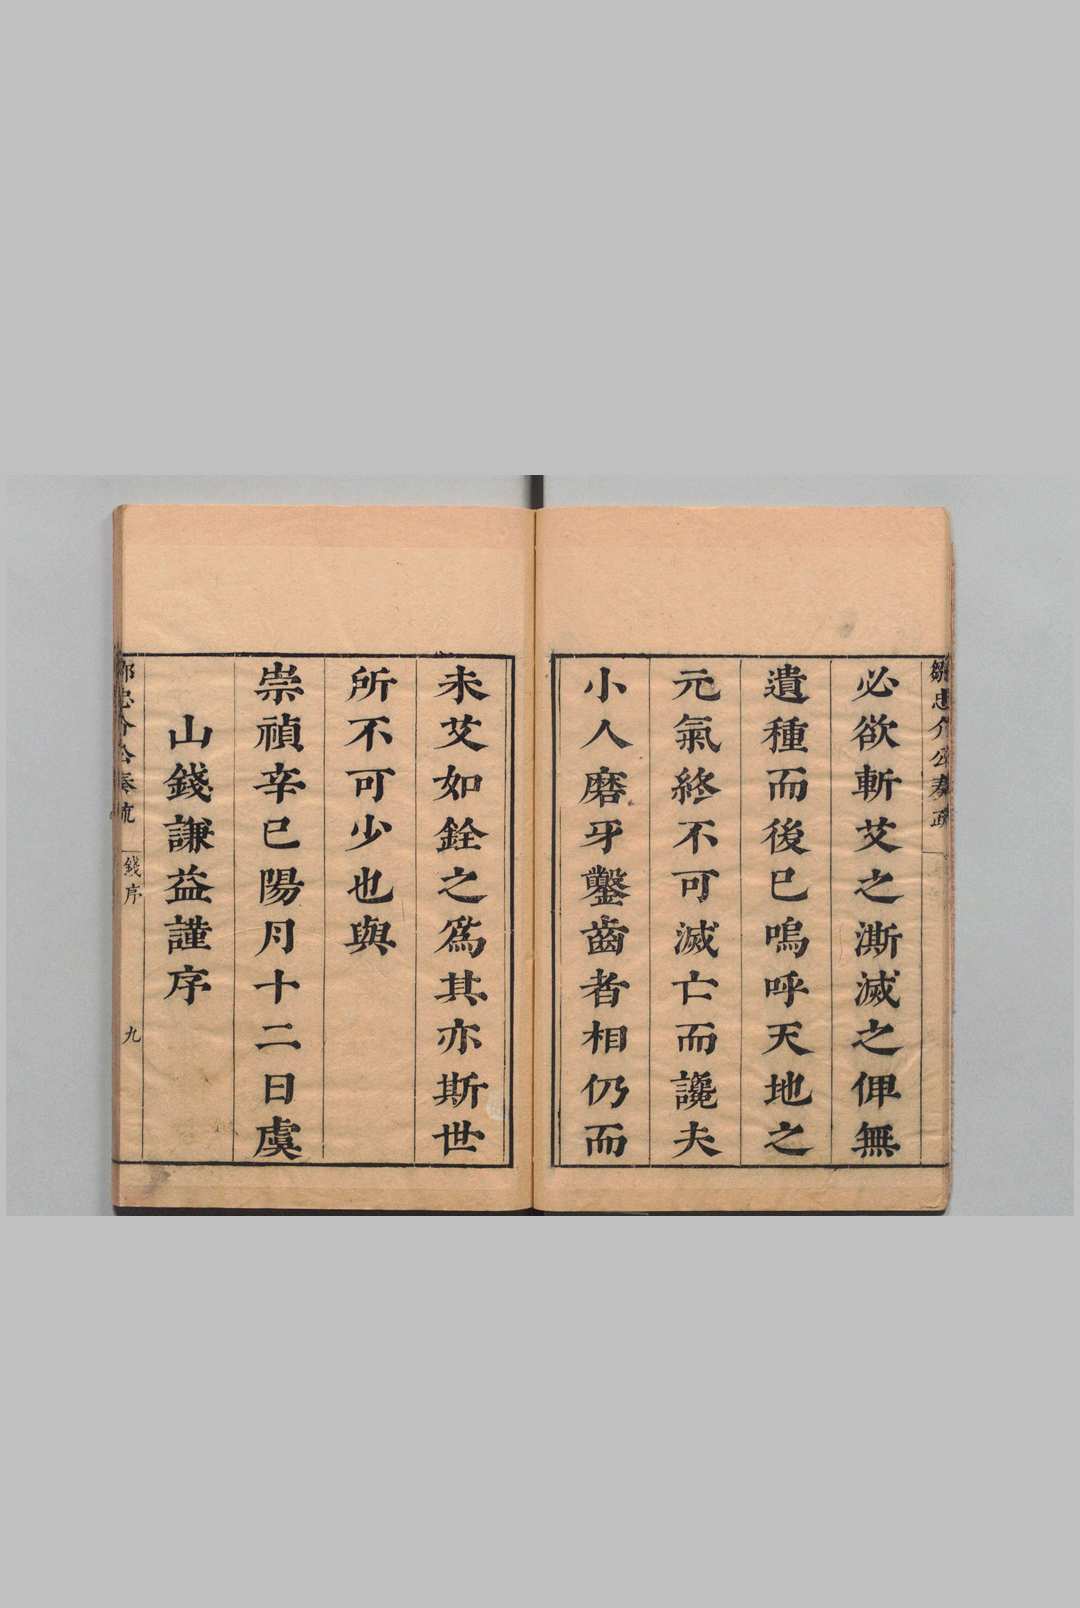 鄒忠介公奏疏
必欲斬艾之澌滅之俾無
遺種而後已嗚呼天地之
元氣終不可滅亡而讒夫
小人磨牙鑿齒者相仍而
未艾如銓之爲其亦斯世
所不可少也與
崇禎辛巳陽月十二日虞
山錢謙益謹序
鄒忠介公奏疏
錢序
九